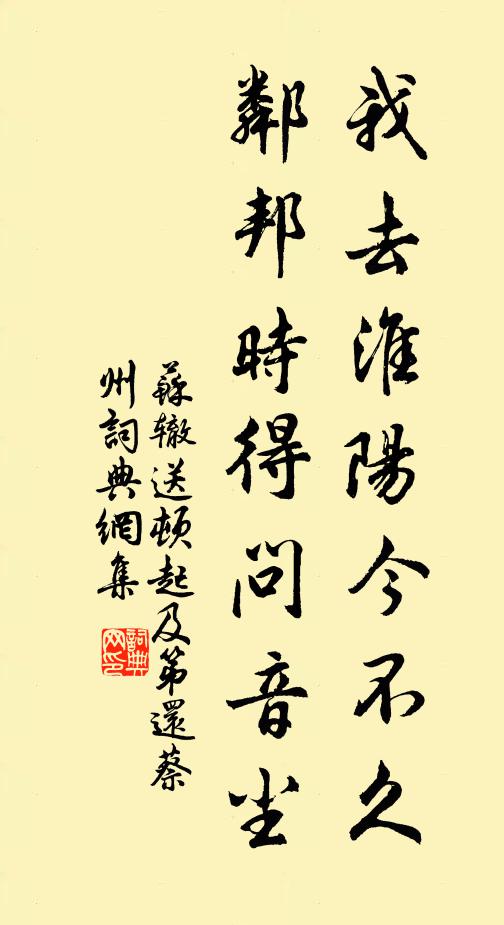 我去淮陽今不久
鄰邦時得問音尘
蘇轍送頓起及第還蔡
州詞典網集
詞典
网印